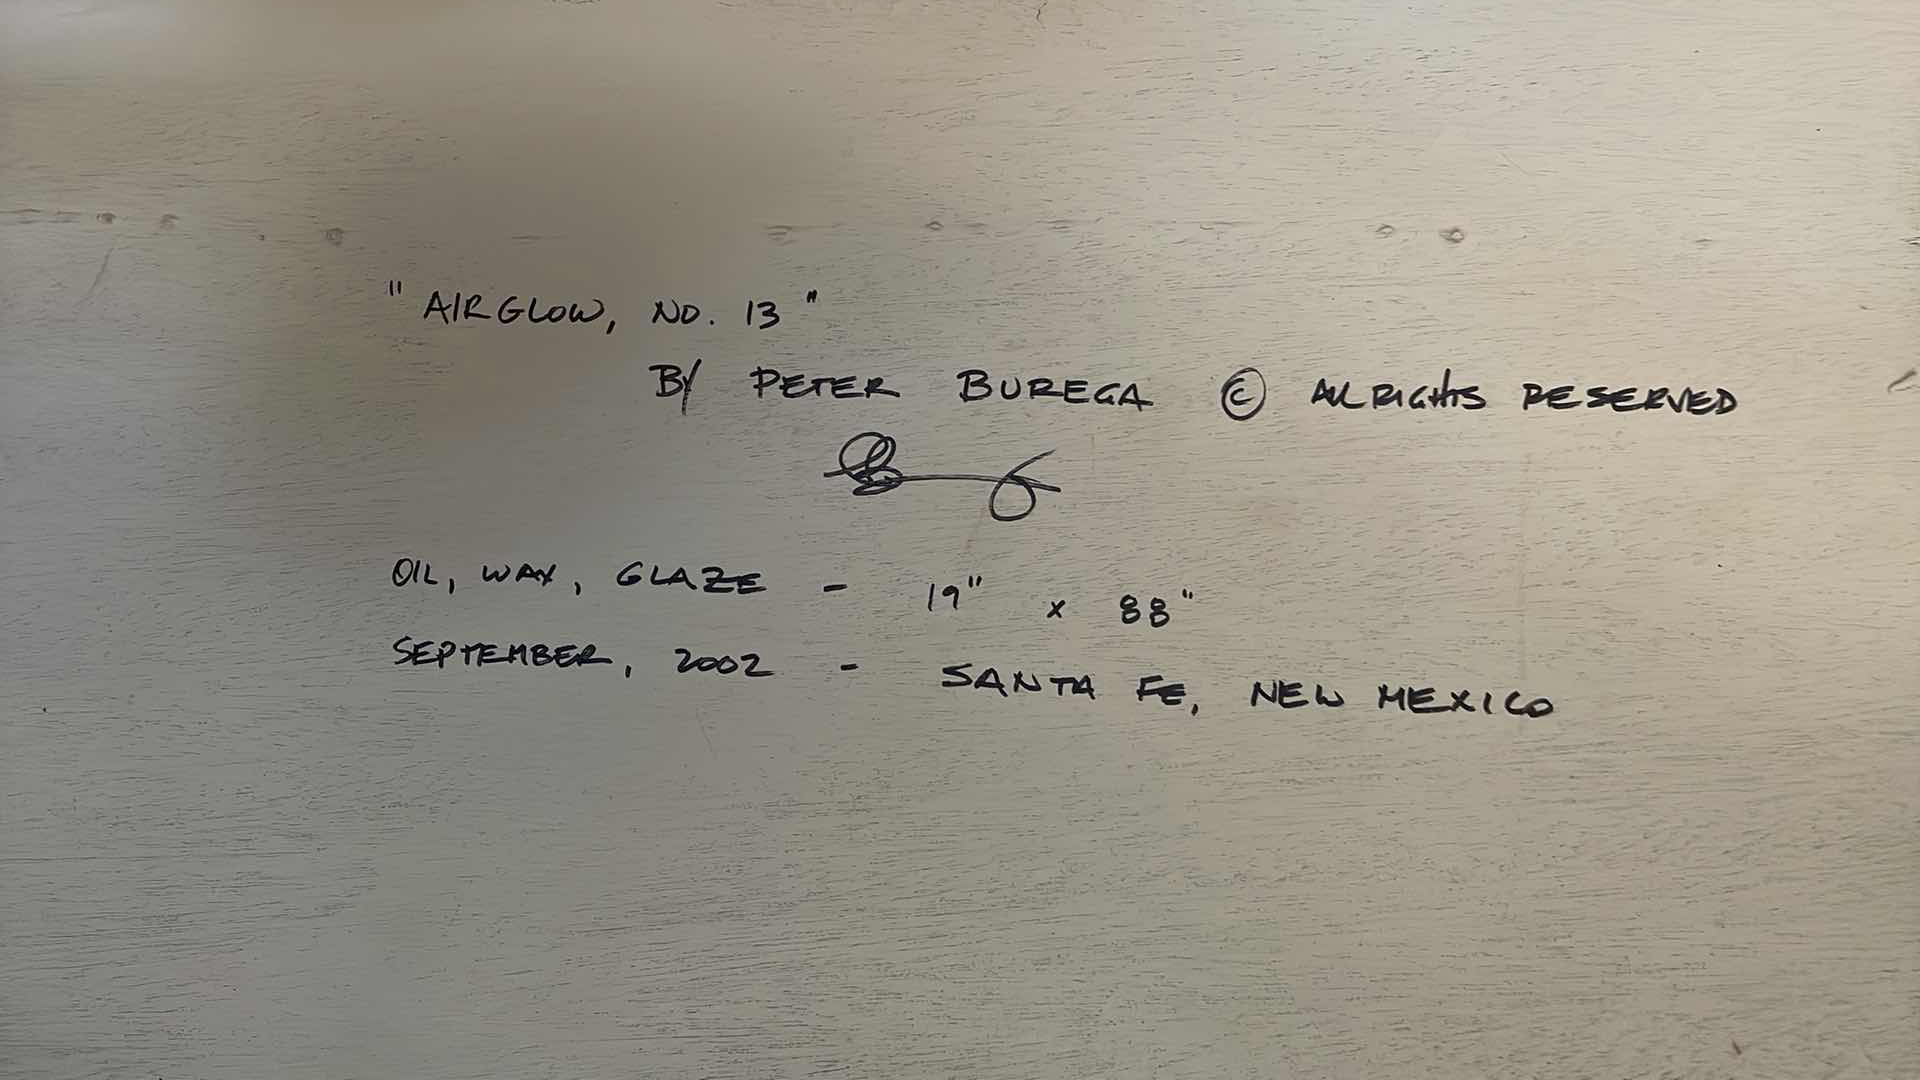 "AIRGLOW, NO. 13"
BY PETER BUREGA © ALL RIGHTS RESERVED
OIL, WAX, GLAZE - 19" x 88"
SEPTEMBER, 2002 - SANTA FE, NEW MEXICO